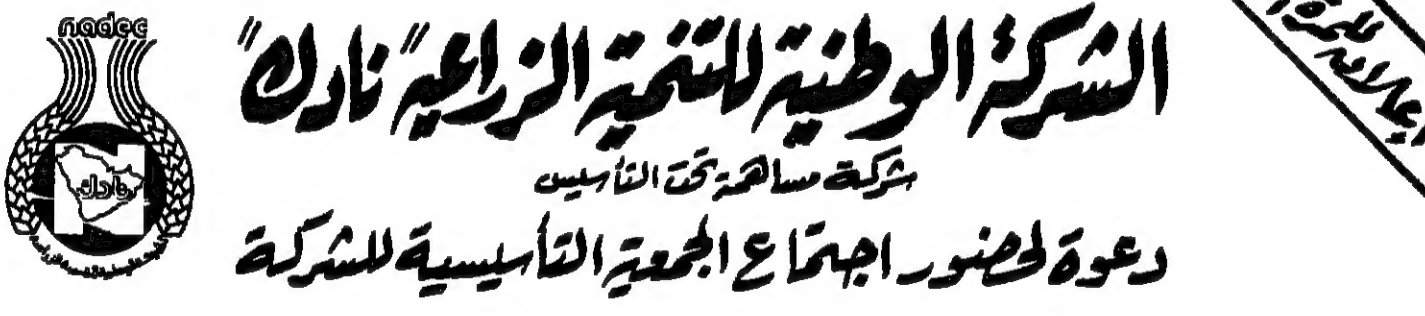 الشركة الوطنية للتنمية الزراعية "نادك"
شركة مساهمة تحت التأسيس
دعوة لحضور اجتماع الجمعية التأسيسية للشركة
nadec
نادك